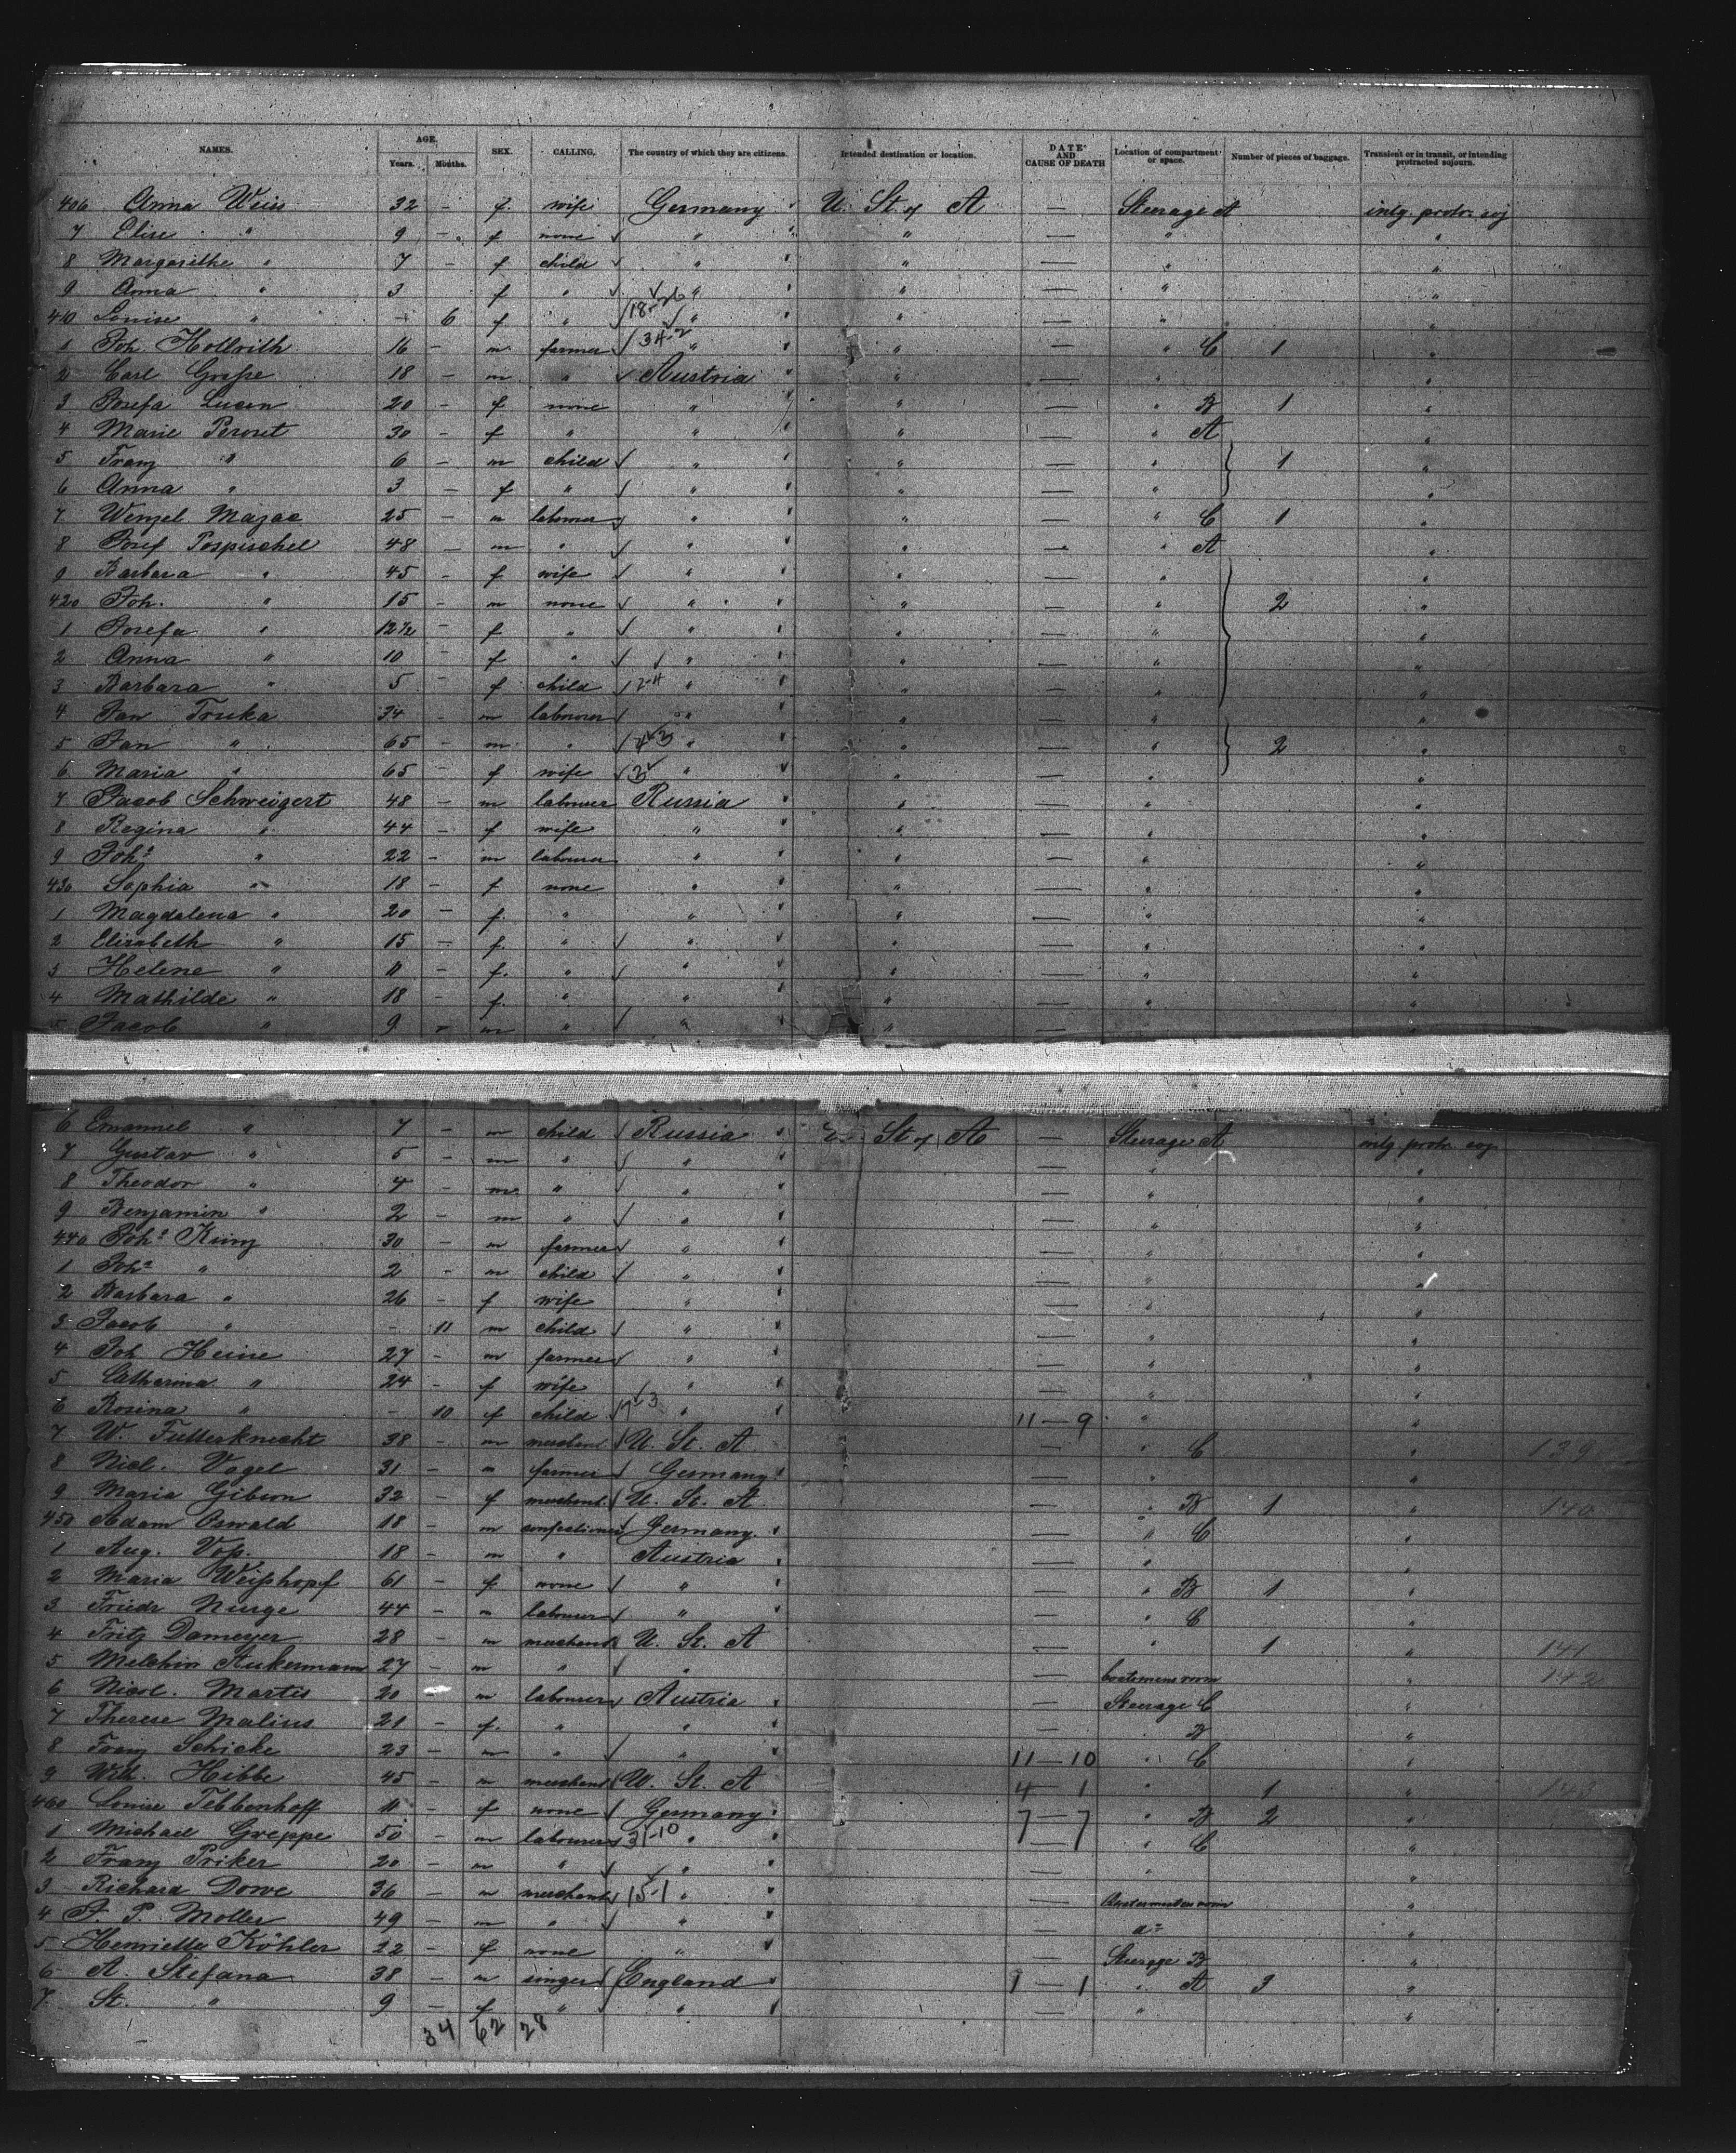 NAMES. AGE. Years. Months. SEX. CALLING. The country of which they are citizens. Intended destination or location. DATE AND CAUSE OF DEATH Location of compartment or space. Number of pieces of baggage. Transient or in transit, or intending protracted sojourn.
406 Anna Weiss 32 - f. wife Germany U. St. of A — Steerage A intg. protr. soj
7 Elise " 9 - f none " " — " "
8 Margarethe " 7 - f child " " — " "
9 Anna " 3 f " " " — " "
410 Louise " - 6 f " 18-26 " " — " "
1 Joh. Hollrith 16 - m farmer 34-2 " " — " C 1 "
2 Carl Graße 18 - m " Austria " — " "
3 Josefa Lucen 20 - f none " " — " B 1 "
4 Marie Peroret 30 - f " " " — " A "
5 Franz " 6 - m child " " — " 1 "
6 Anna " 3 - f " " " — " "
7 Wenzel Mazac 25 - m labourer " " — " C 1 "
8 Josef Pospischel 48 - m " " " — " A "
9 Barbara " 45 - f wife " " — " "
420 Joh. " 15 - m none " " — " 2 "
1 Josefa " 12½ - f " " " — " "
2 Anna " 10 - f " " " — " "
3 Barbara " 5 - f child 24 " " — " "
4 Jan Truka 34 - m labourer " " — " "
5 Jan " 65 - m " " " — " 2 "
6 Maria " 65 - f wife " " — " "
7 Jacob Schweigert 48 - m labourer Russia " — " "
8 Regina " 44 - f wife " " — " "
9 Johs " 22 - m labourer " " — " "
430 Sophia " 18 - f none " " — " "
1 Magdalena " 20 - f. " " " — " "
2 Elizabeth " 15 - f. " " " — " "
3 Helene " 11 - f. " " " — " "
4 Mathilde " 18 - f. " " " — " "
5 Jacob " 9 - m " " " —
6 Emannel " 7 - m child Russia U. St of A — Steerage A intg protr soj
7 Gustav " 5 - m " " — " "
8 Theodor " 4 - m " " — " "
9 Benjamin " 2 - m " " — " "
440 Johs Kunz 30 - m farmer " — " "
1 Johs " 2 - m child " — " "
2 Barbara " 26 - f wife " — " "
3 Jacob " - 11 m child " — " "
4 Joh Heine 27 - m farmer " — " "
5 Catharina " 24 - f wife " — " "
6 Rosina " - 10 f child " 11—9 " "
7 W. Futterknecht 38 - m merchant U. St. A — " C " 139
8 Nicl. Vogel 31 - m farmer Germany — " "
9 Maria Gibson 32 - f merchant U. St. A — " B 1 " 140
450 Adam Oswald 18 - m confectioner Germany — " C "
1 Aug. Voß. 18 - m " Austria — " "
2 Maria Weißhopf 61 - f none " — " B 1 "
3 Friedr Nurge 44 - m labourer " — " C "
4 Fritz Dameyer 28 - m merchant U. St. A — " 1 " 141
5 Melchior Aukermann 27 - m " " — boatsmens room " 142
6 Nicol. Martis 20 - m labourer Austria — Steerage C "
7 Therese Malius 21 - f. " " — " B "
8 Franz Schicke 23 - m " " 11—10 " C "
9 Wilh. Hibbe 45 - m merchant U. St. A 4—1 " 1 " 143
460 Louise Tebbenhoff 11 - f none Germany 7—7 " B 2 "
1 Michael Greppe 50 - m labourer 31-10 " — " C "
2 Franz Priker 20 - m " " — " "
3 Richard Dowe 36 - m merchant 15-1 " — "
4 F. P. Moller 49 - m " " — do "
5 Henriette Köhler 22 - f none " — Steerage B "
6 A. Stefana 38 - m singer England 1—1 " A 3 "
7 St. " 9 - f " " — " "
34 62 28